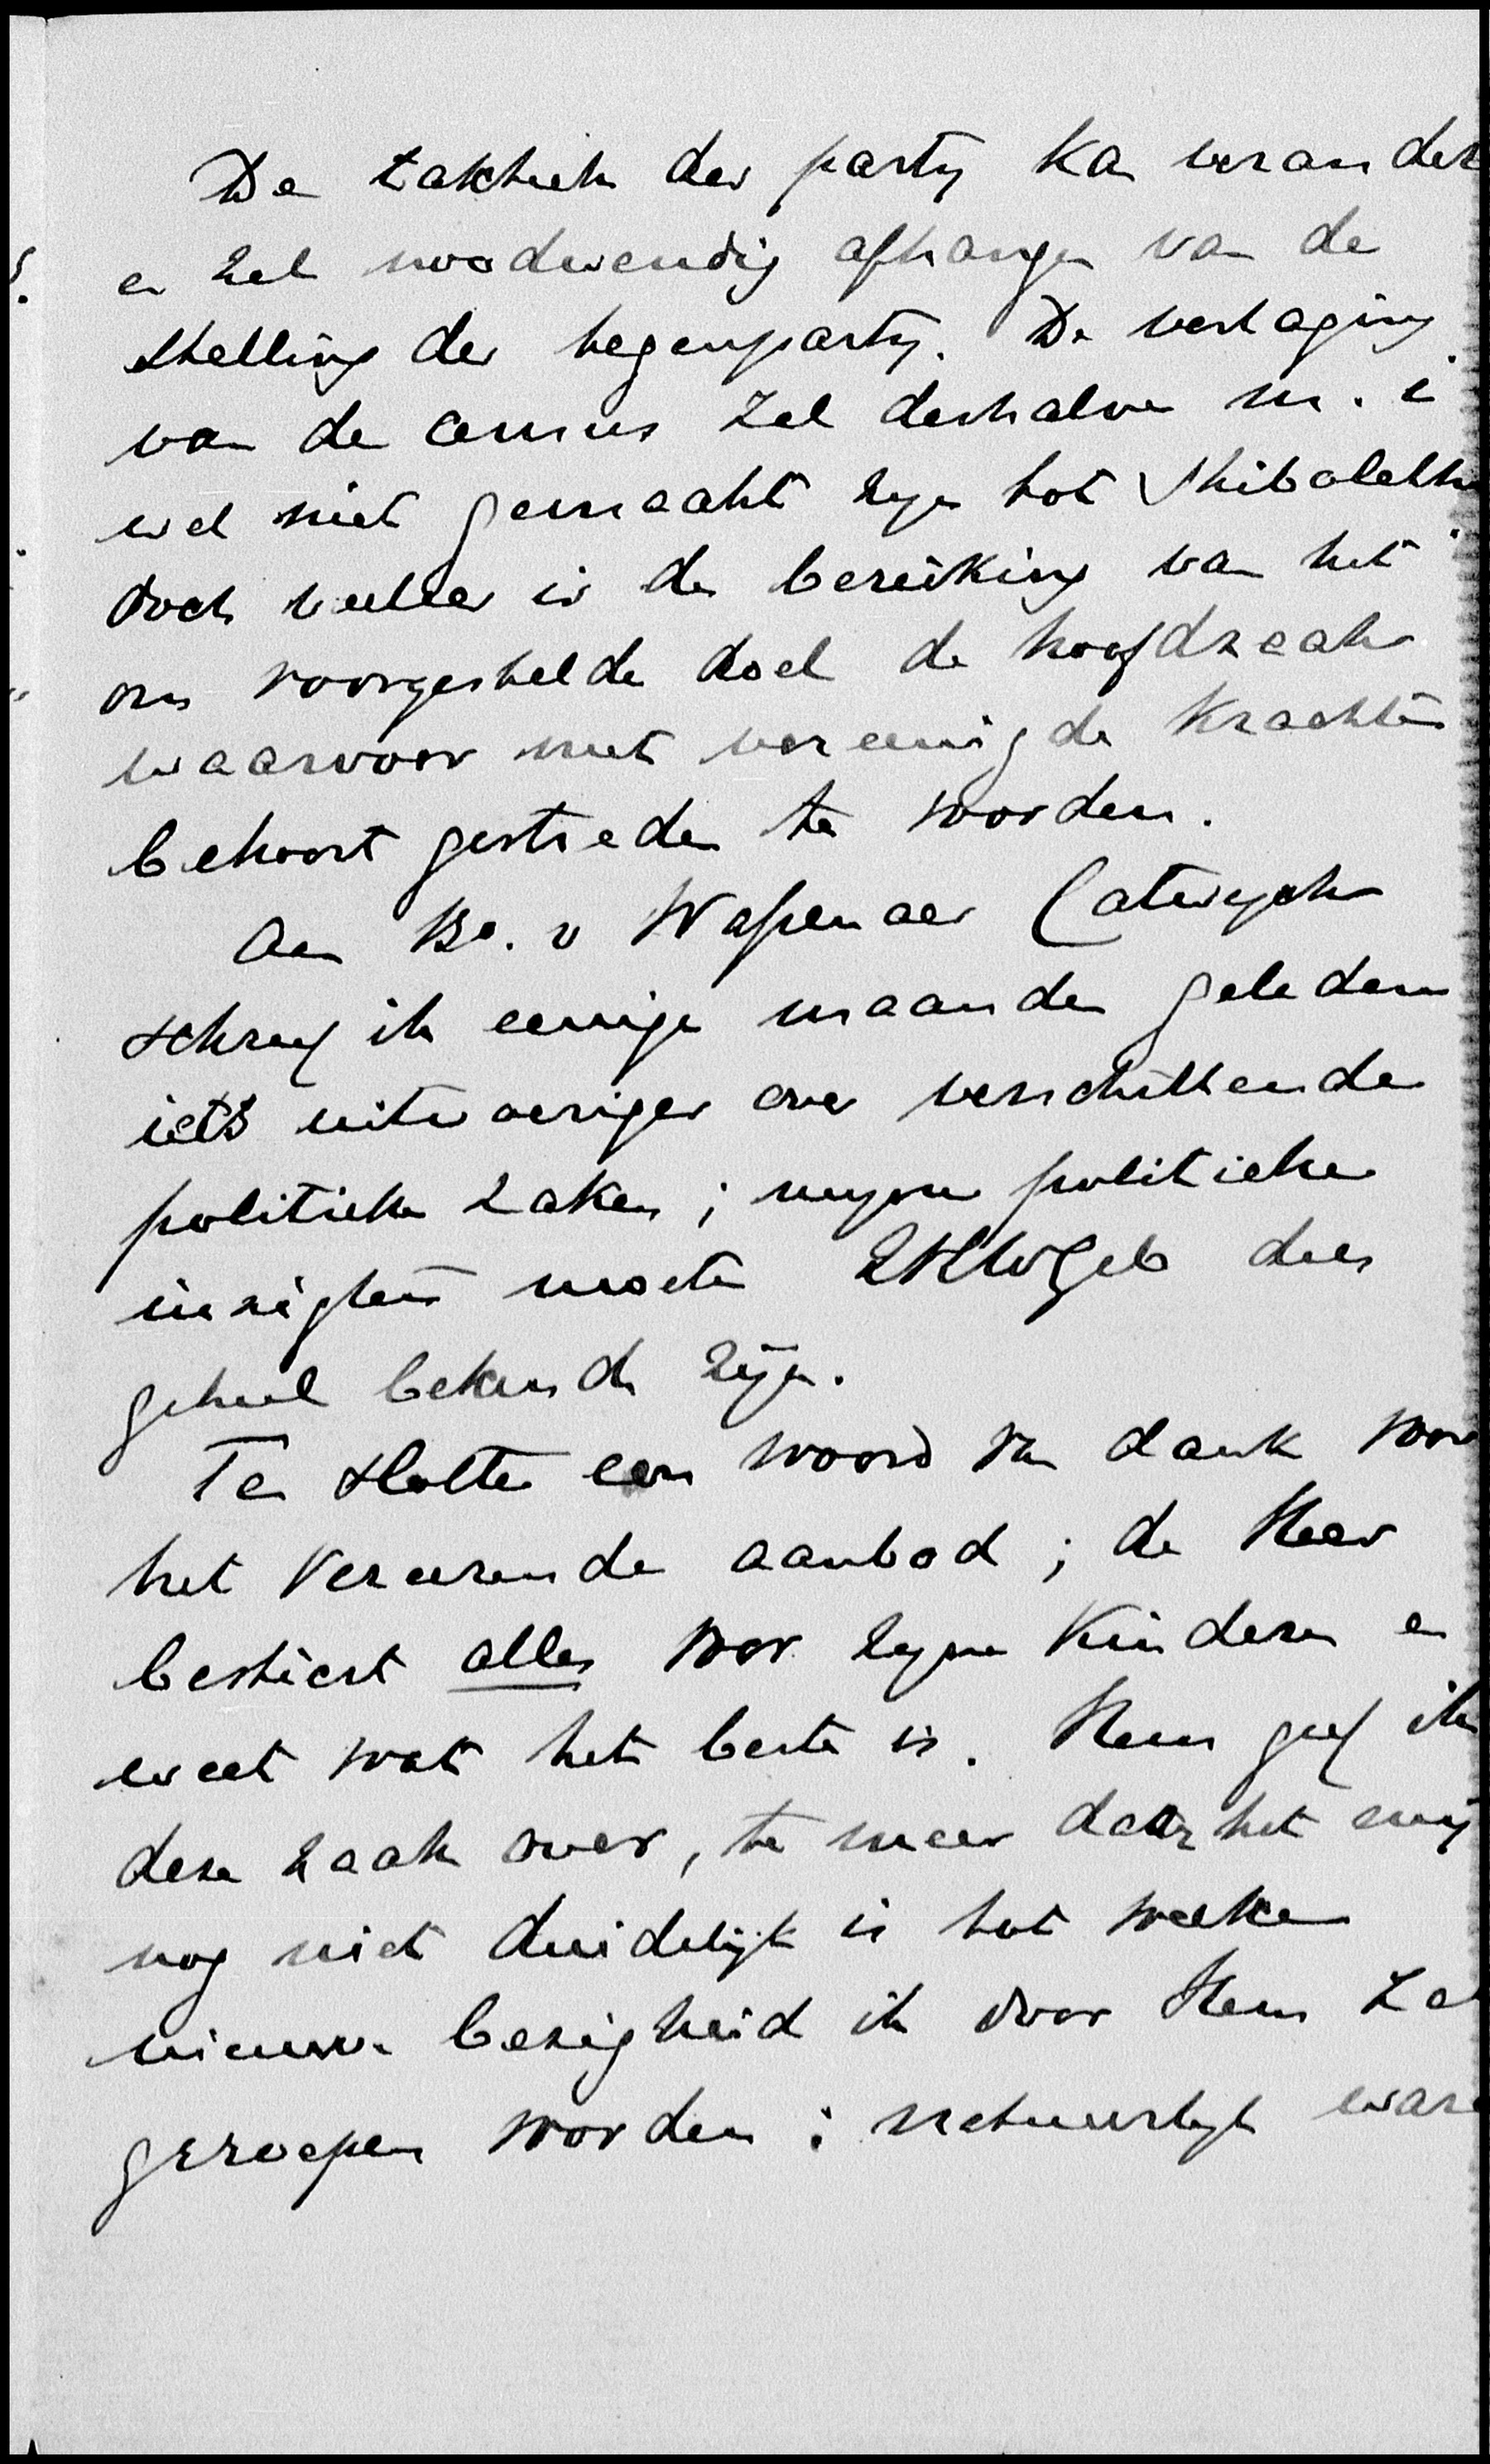 De taktiek der party kan verander
en zal noodwendig afhangen van de
stelling der tegenparty. De verlaging
van de census zal derhalve m. i
wel niet gemaakt zyn tot Shibboleth
doch veeleer is de bereiking van het
ons voorgestelde doel de hoofdzaak
waarvoor met vereenigde krachten
behoort gestreden te worden.
Aan Bn. v Wassenaer Catwyck
schreef ik eenige maanden geleden
iets uitvoeriger over verschillende
politieke zaken; myne politieke
inzigten moeten UHWGeb dus
geheel bekend zijn.
Ten slotte een woord van dank voor
het vereerende aanbod; de Heer
bestiert alles voor zyne kinderen en
weet wat het beste is. Hem geef ik
deze zaak over, te meer daar het my
nog niet duidelijk is tot welke
nieuwe bezigheid ik door Hem zal
geroepen worden: natuurlyk ware